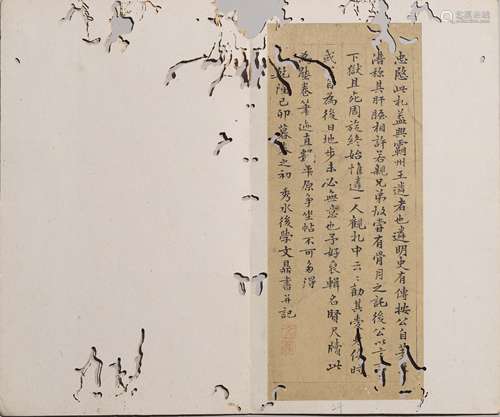 忠愍此札蓋與霸州王遴者也遴明史有傳按公自著年
譜称其肝膽相許若親兄弟故嘗有骨月之託後公以言事
下獄且死周旋終始惟遴一人觀札中云〻勸其
或自為後日地步未必無意也予好衰輯名賢尺牘此
卷筆迹直逼平原爭坐帖不可多得
乾隆己卯暮之初 秀水後學文 書并記